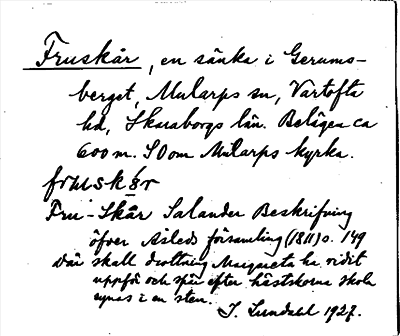 Fruskår, en sänka i Gerums-
berget, Mularps sn, Vartofta
hd, Skaraborgs län. Belägen ca
600 m. SO om Mularps kyrka.
frʉskår
Fru-Skår Salander Beskrifning
öfver Åsleds församling (1811) s. 149
där skall drottning Margareta ha ridit
uppför och spår efter hästskorna skola
synas i en sten.
J. Lundahl 1927.